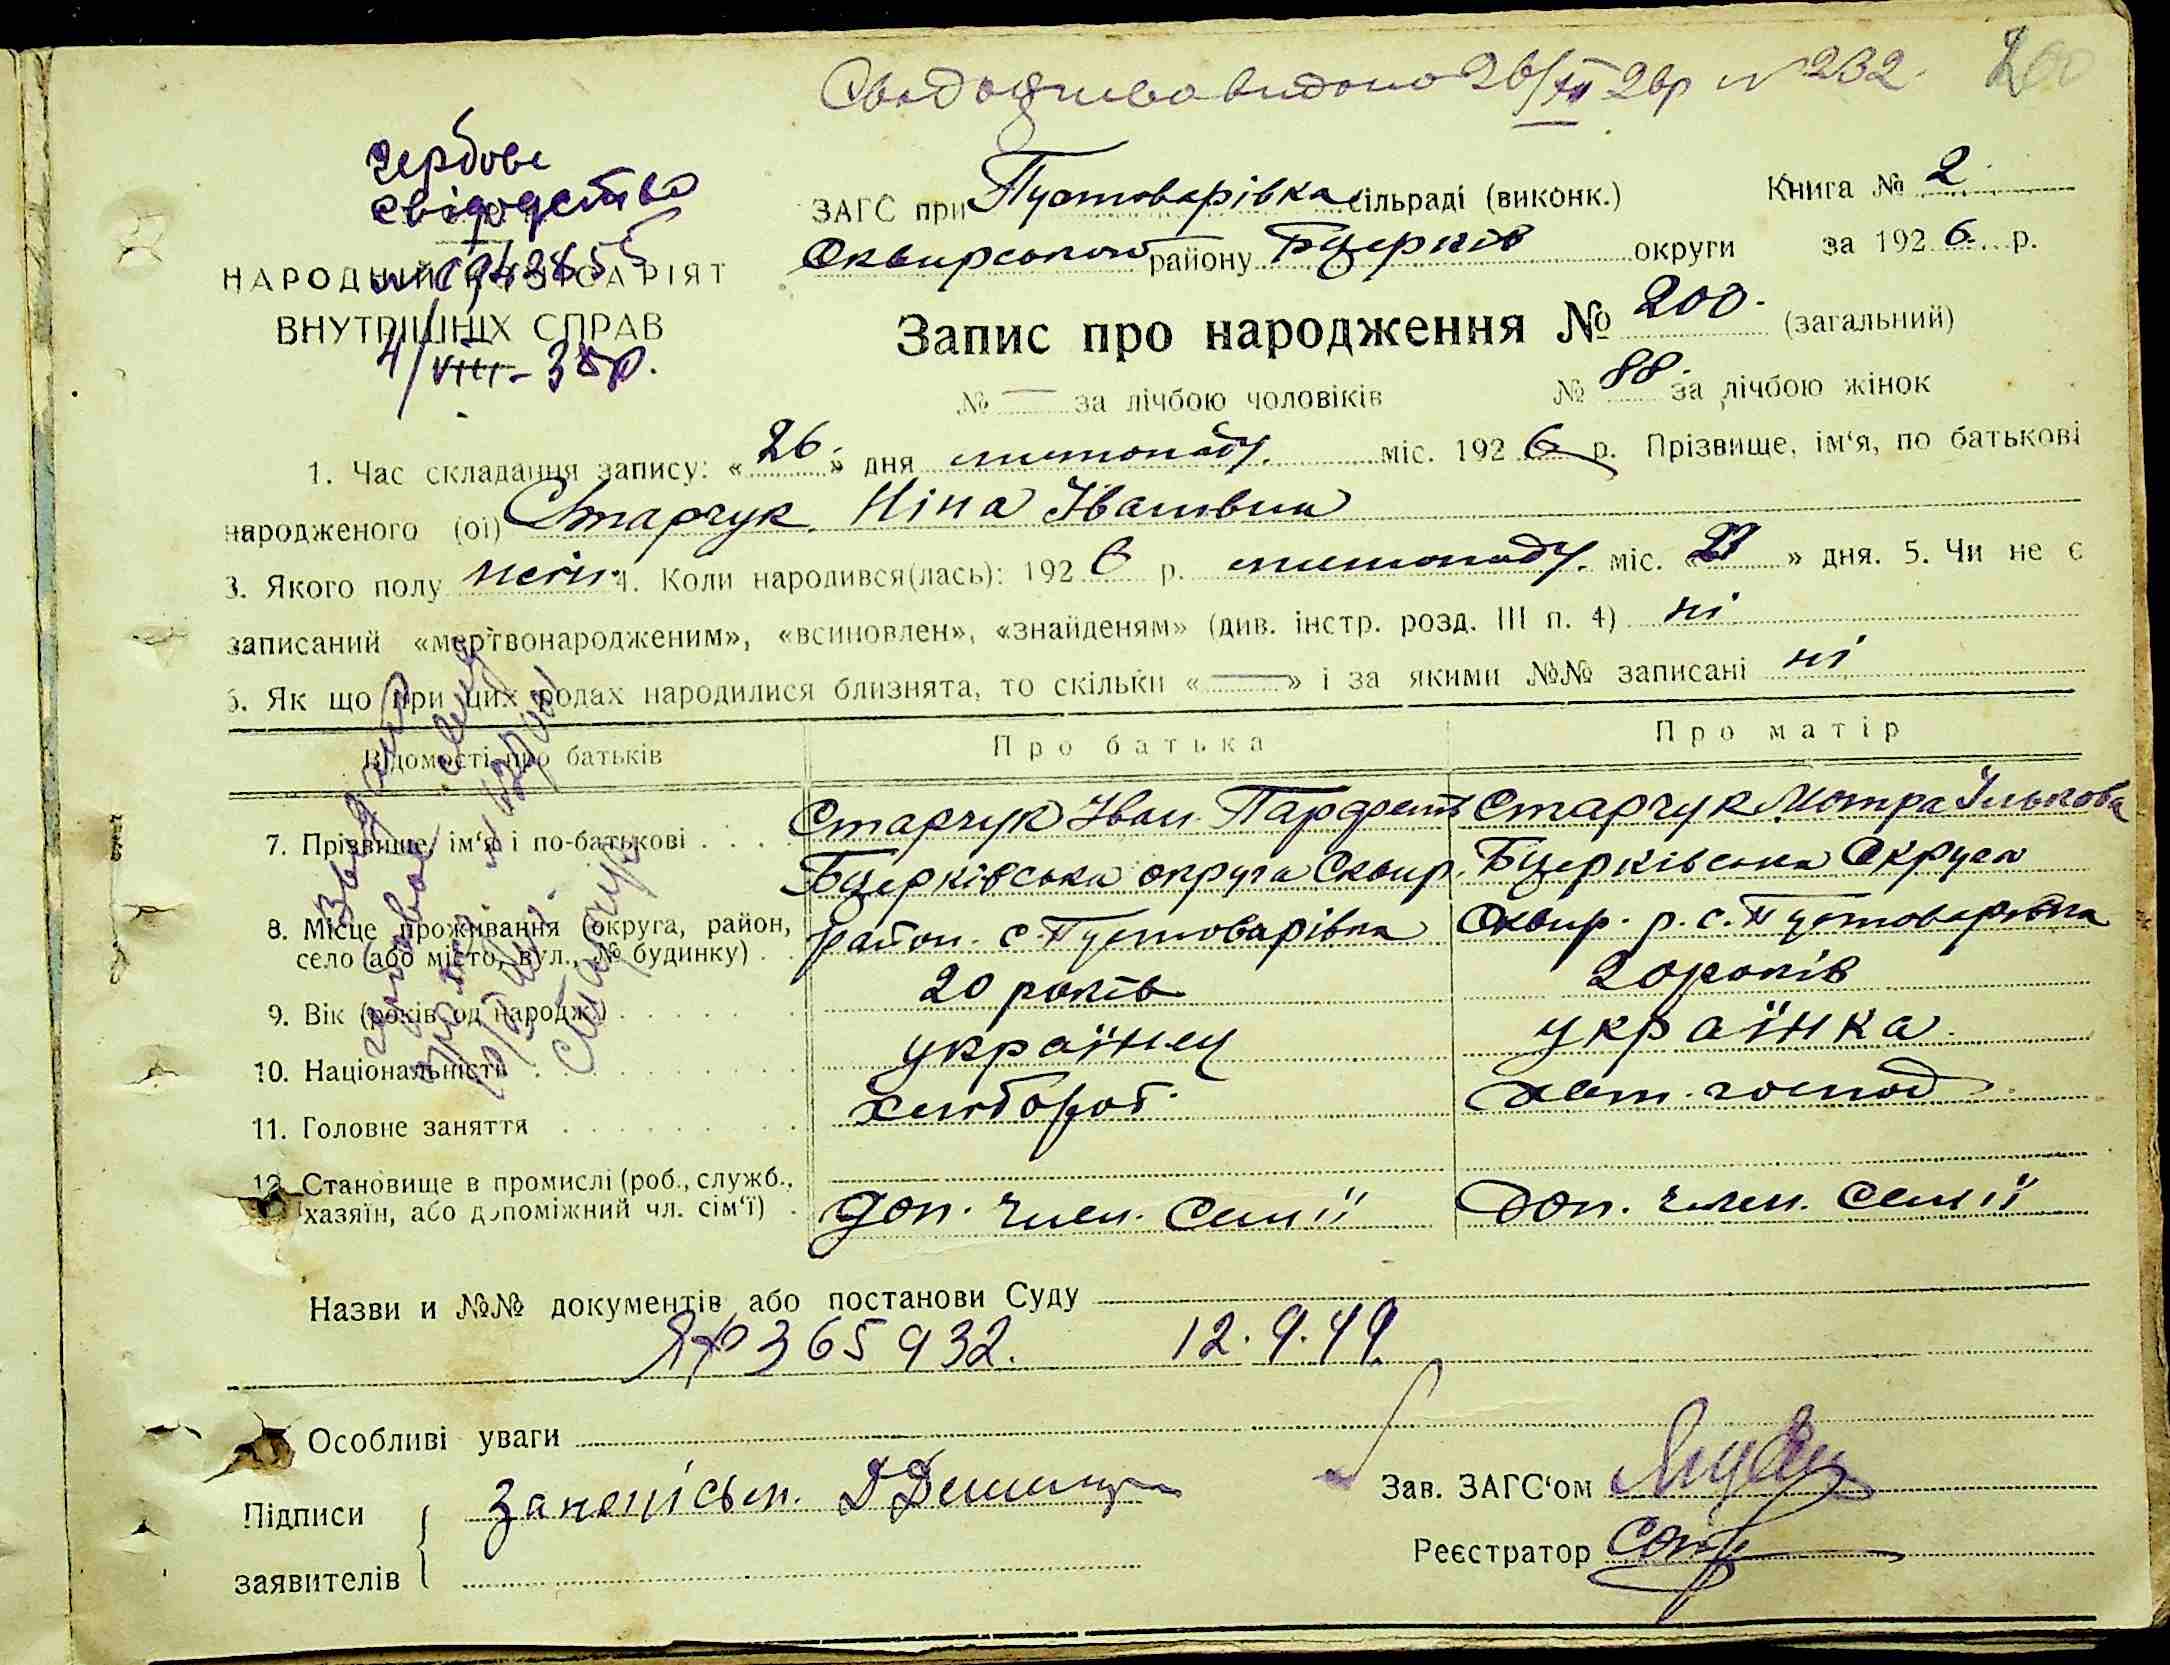 Свидоцтво видано 26/XI 26р № 232. 200
гербове
свідоцтво
ЗАГС при Пустоварівка сільраді (виконк.) Книга № 2
Сквирського району Бцерків округи за 1926 р.
НАРОДНИЙ КОМІСАРІЯТ
ВНУТРІШНІХ СПРАВ
4/VIII-38р.
Запис про народження № 200. (загальний)
№ — за лічбою чоловіків № 88. за лічбою жінок
1. Час складання запису: «26» дня листопаду. міс. 1926 р. Прізвище, ім'я, по батькові
народженого (ої) Старчук Ніна Іванівна
3. Якого полу жін. 4. Коли народився(лась): 1926 р. листопаду. міс. «23» дня. 5. Чи не є
записаний «мертвонародженим», «всиновлен», «знайденям» (див. інстр. розд. III п. 4) ні
6. Як що при цих родах народилися близнята, то скільки «—» і за якими №№ записані ні
Відомості про батьків Про батька Про матір
7. Прізвище, ім'я і по-батькові . . . . Старчук Іван Парфент Старчук Мотра Ількова
Бцерківська округа Сквир. Бцерківська Округа
8. Місце проживання (округа, район, село (або місто, вул., № будинку) . . район. с. Пустоварівка Сквир. р. с. Пустоварівка
9. Вік (років од народж.) . . . . . . 20 років 20 років
10. Національність . . . . . . . . українец українка.
11. Головне заняття . . . . . . . . хлібороб. хат. господ.
12. Становище в промислі (роб., служб.,
хазяїн, або допоміжний чл. сім'ї) . доп. член. семії доп. член. семії
Назви и №№ документів або постанови Суду
365932. 12.9.49.
Особливі уваги
Підписи
заявителів
Зав. ЗАГС'ом
Реєстратор